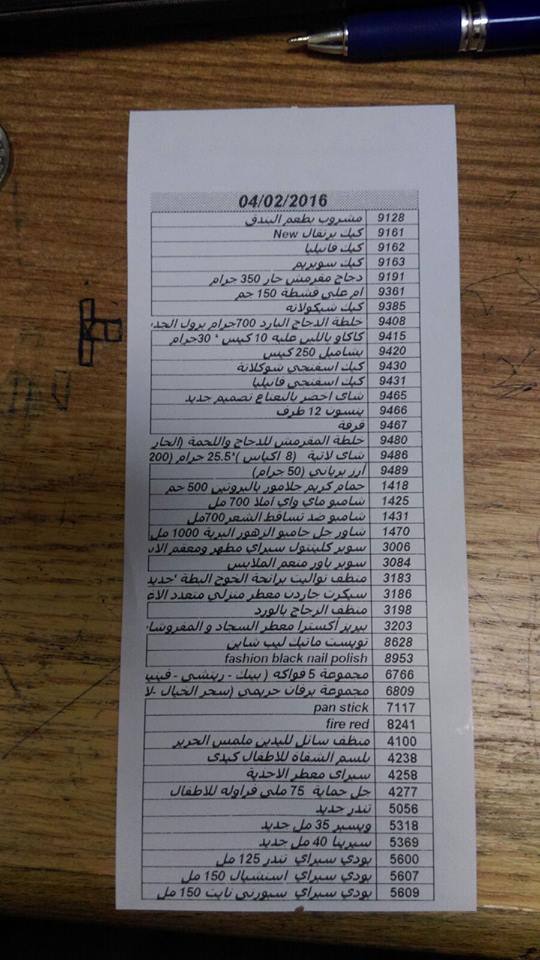 04/02/2016
9128 مشروب بطعم البندق
9161 كيك برتقال New
9162 كيك فانيليا
9163 كيك سوبريم
9191 دجاج مقرمش حار 350 جرام
9361 ام علي قشطة 150 جم
9385 كيك شيكولاته
9408 خلطة الدجاج البارد 700جرام برول الجد
9415 كاكاو باللبن علبه 10 كيس * 30جرام
9420 بشاميل 250 كيس
9430 كيك اسفنجي شوكلاتة
9431 كيك اسفنجي فانيليا
9465 شاى اخضر بالنعناع تصميم جديد
9466 ينسون 12 ظرف
9467 قرفة
9480 خلطة المقرمش للدجاج واللحمة (الحار
9486 شاى لاتية (8 اكياس )*25.5 جرام (200
9489 أرز برياني (50 جرام)
1418 حمام كريم جلامور بالبروتين 500 جم
1425 شامبو ماي واي املا 700 مل
1431 شامبو ضد تساقط الشعر700مل
1470 شاور جل جامبو الزهور البرية 1000 مل
3006 سوبر كلينتول سبراي مطهر ومعقم الا
3084 سوبر باور منعم الملابس
3183 منظف تواليت برائحة الخوخ البطة 'جديد
3186 سيكرت جاردن معطر منزلي متعدد الاغ
3198 منظف الزجاج بالورد
3203 بيريز أكسترا معطر السجاد و المفروشا
8628 تويست ماتيك ليب شاين
8953 fashion black nail polish
6766 مجموعة 5 فواكه ( بينك - ريتشي -
6809 مجموعة برفان حريمي (سحر الخيال -لا
7117 pan stick
8241 fire red
4100 منظف سائل لليدين ملمس الحرير
4238 بلسم الشفاه للاطفال كيدى
4258 سبراى معطر الاحذية
4277 جل حماية 75 ملي فراوله للاطفال
5056 تندر جديد
5318 ويسبر 35 مل جديد
5369 سيرينا 40 مل جديد
5600 بودي سبراي تندر 125 مل
5607 بودي سبراي اسنشيال 150 مل
5609 بودي سبراي سبورتى نايت 150 مل